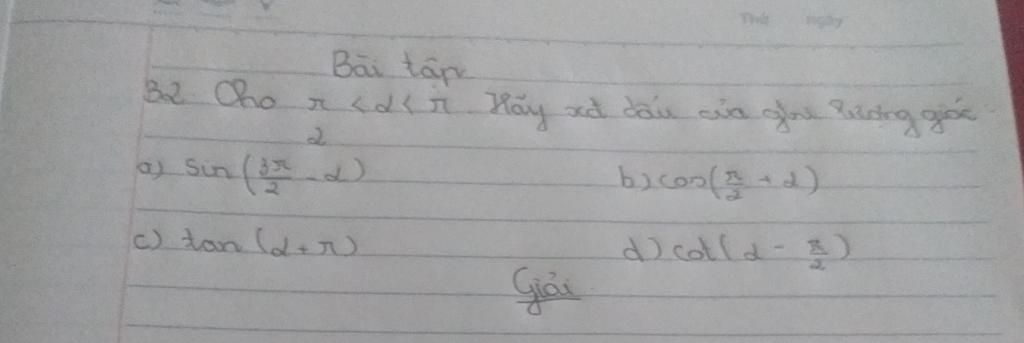 Thứ Ngày
Bài tập
B2 Cho π/2 < α < π Hãy xđ dấu của gtrị lượng giác
a) sin(3π/2 - α) b) cos(π/2 + α)
c) tan(α + π) d) cot(α - π/2)
Giải